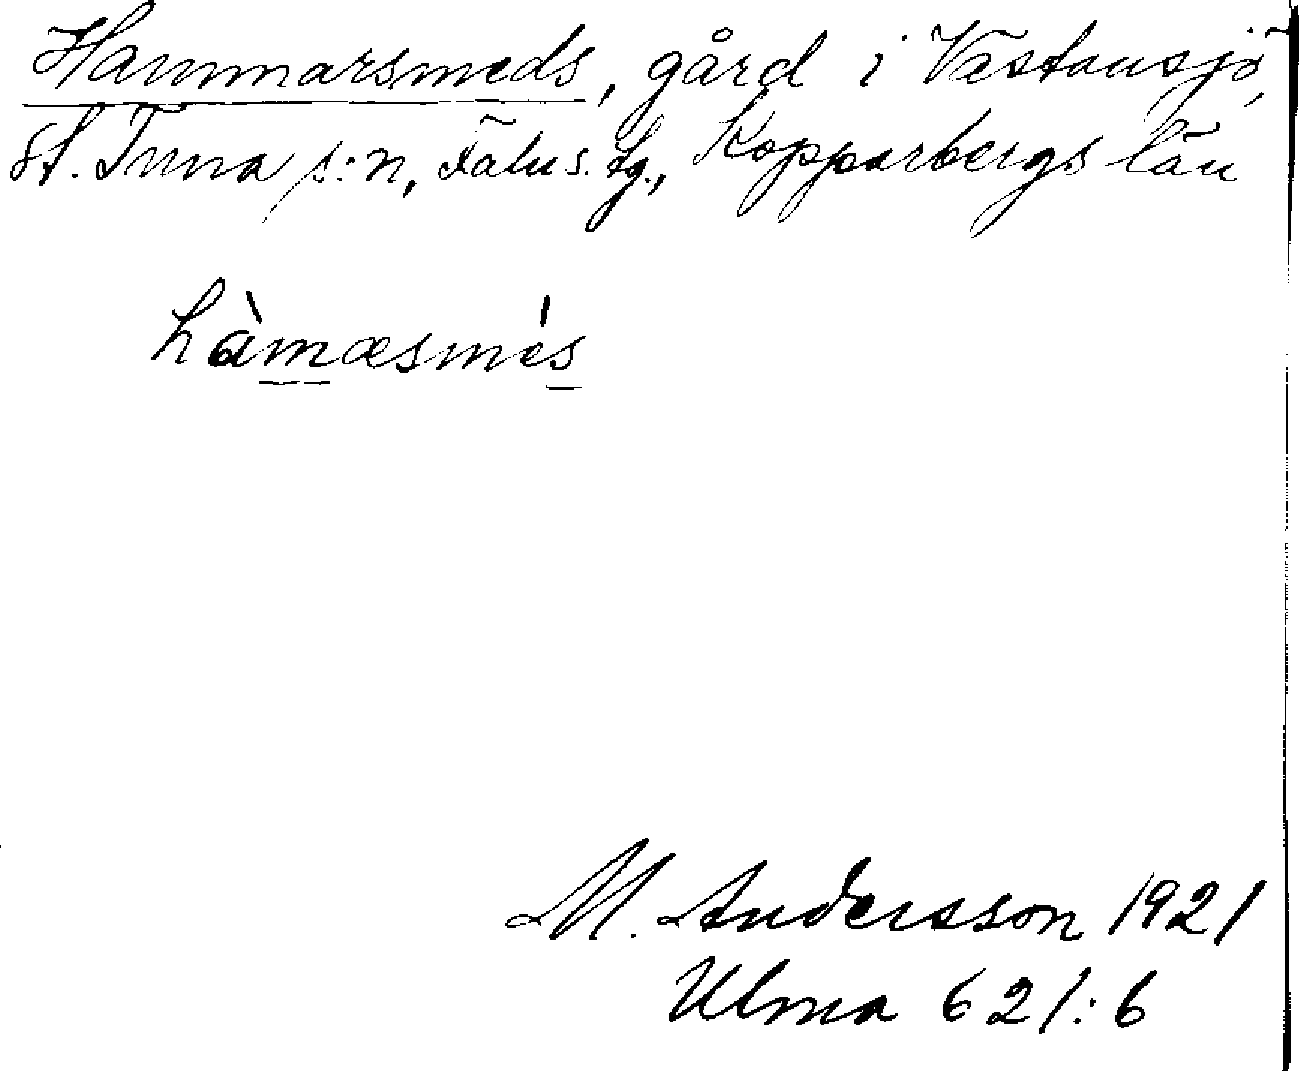 Hammarsmeds, gård i Västansjö,
St. Tuna s:n, Falu s. tg., Kopparbergs län
hàmæsmés
M. Andersson 1921
Ulma 621:6